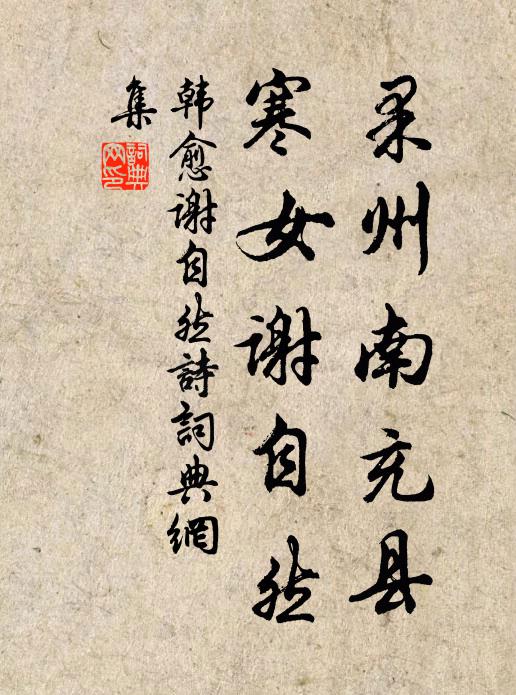 果州南充县
寒女谢自然
韩愈谢自然詩詞典網
集
詞典網印